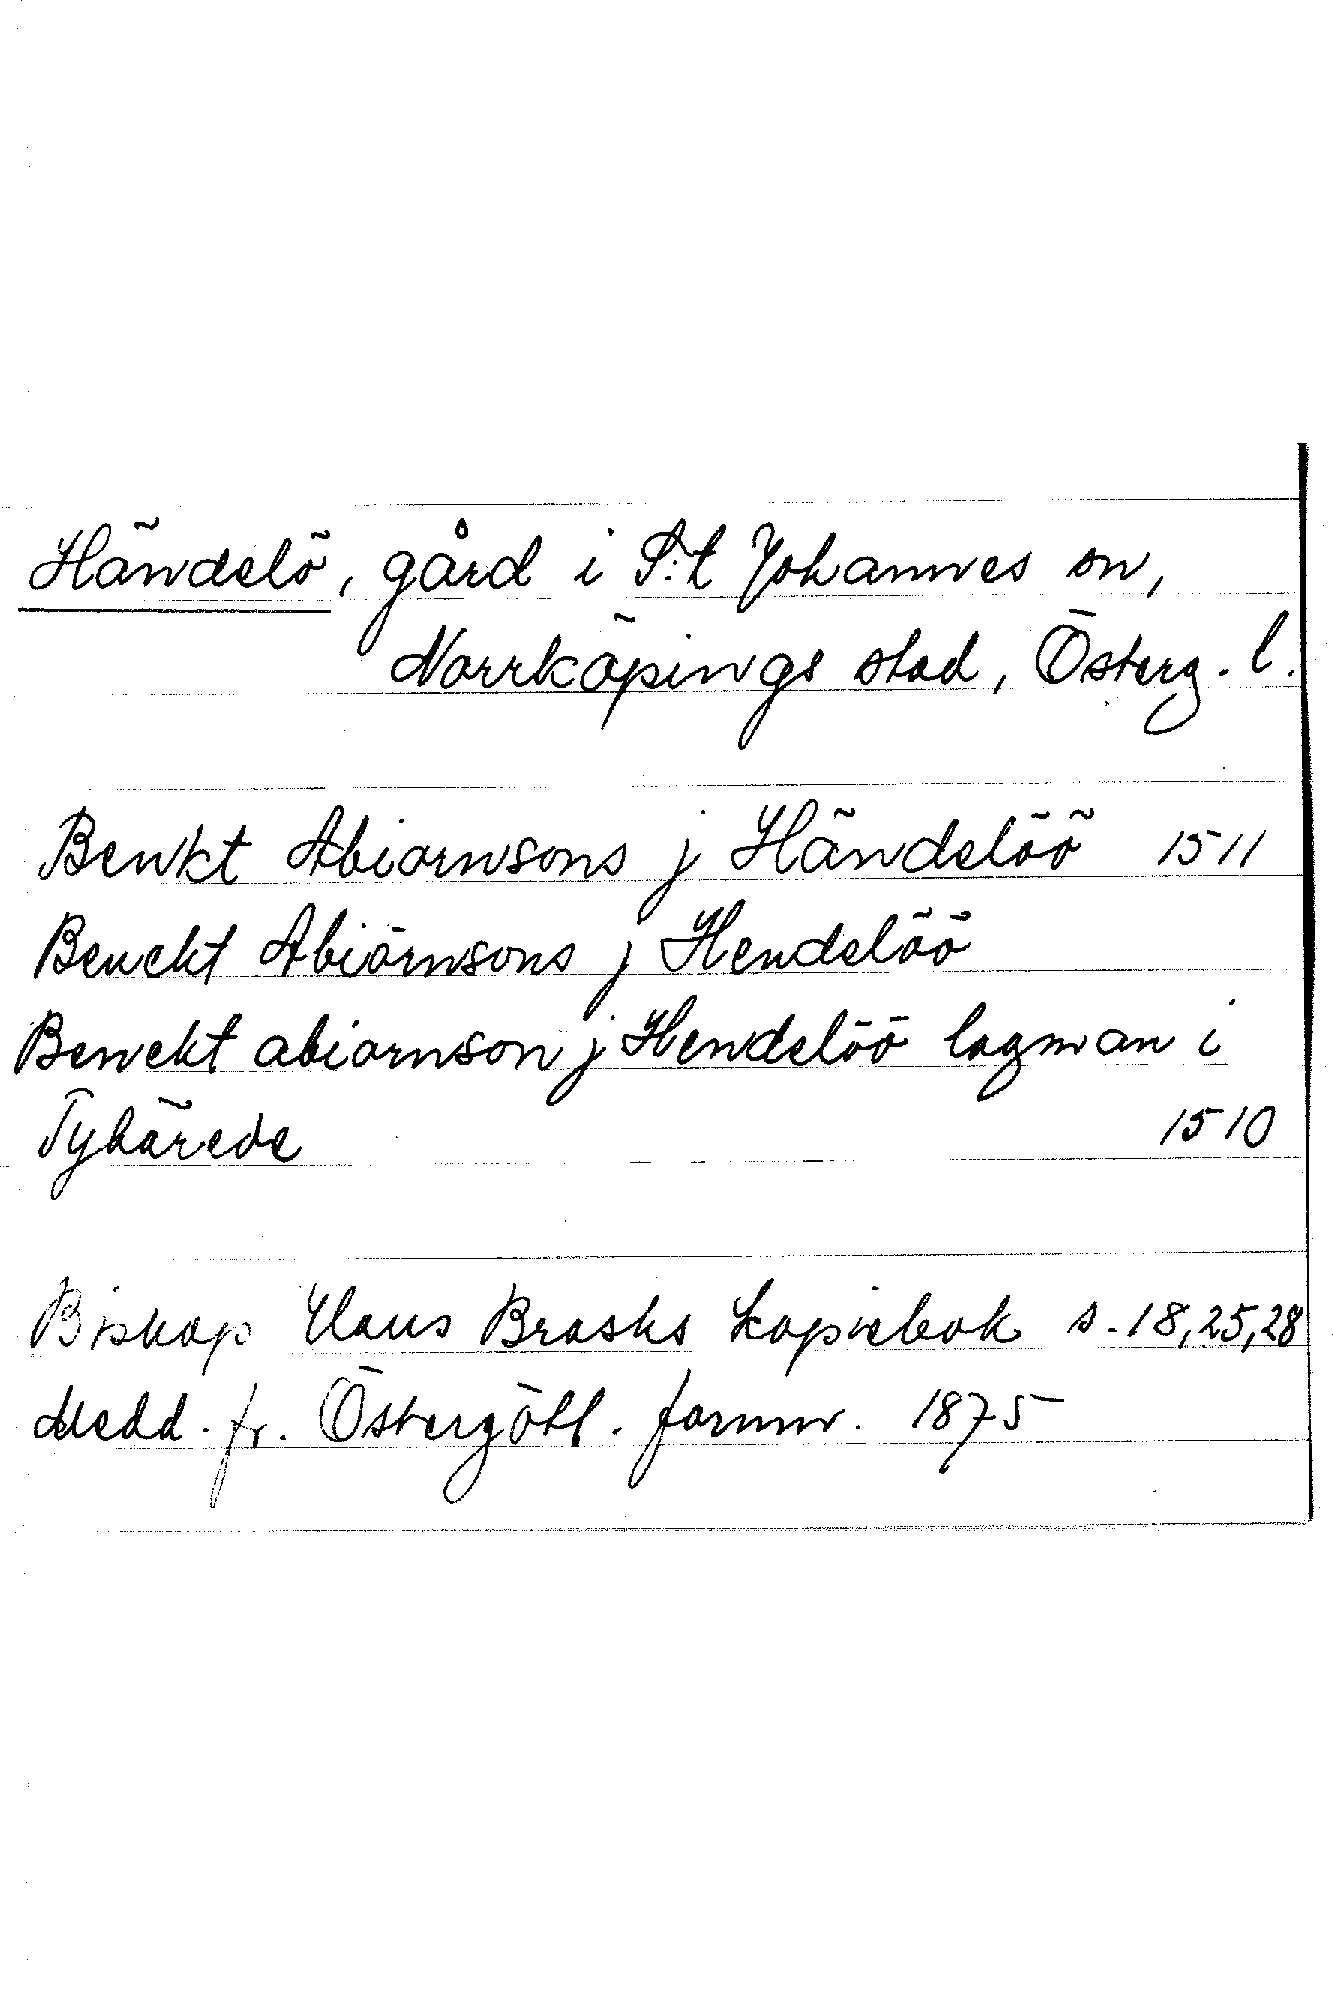 Händelö, gård i S:t Johannes sn,
Norrköpings stad, Österg. l.
Benkt Abiornsons j Händelöö 1511
Benckt Abiörnsons j Hendelöö
Benckt abiornson j Hendelöö lagman i
Tyhärede 1510
Biskop Hans Brasks kopiebok s. 18, 25, 28
Medd. fr. Östergötl. fornmr. 1875